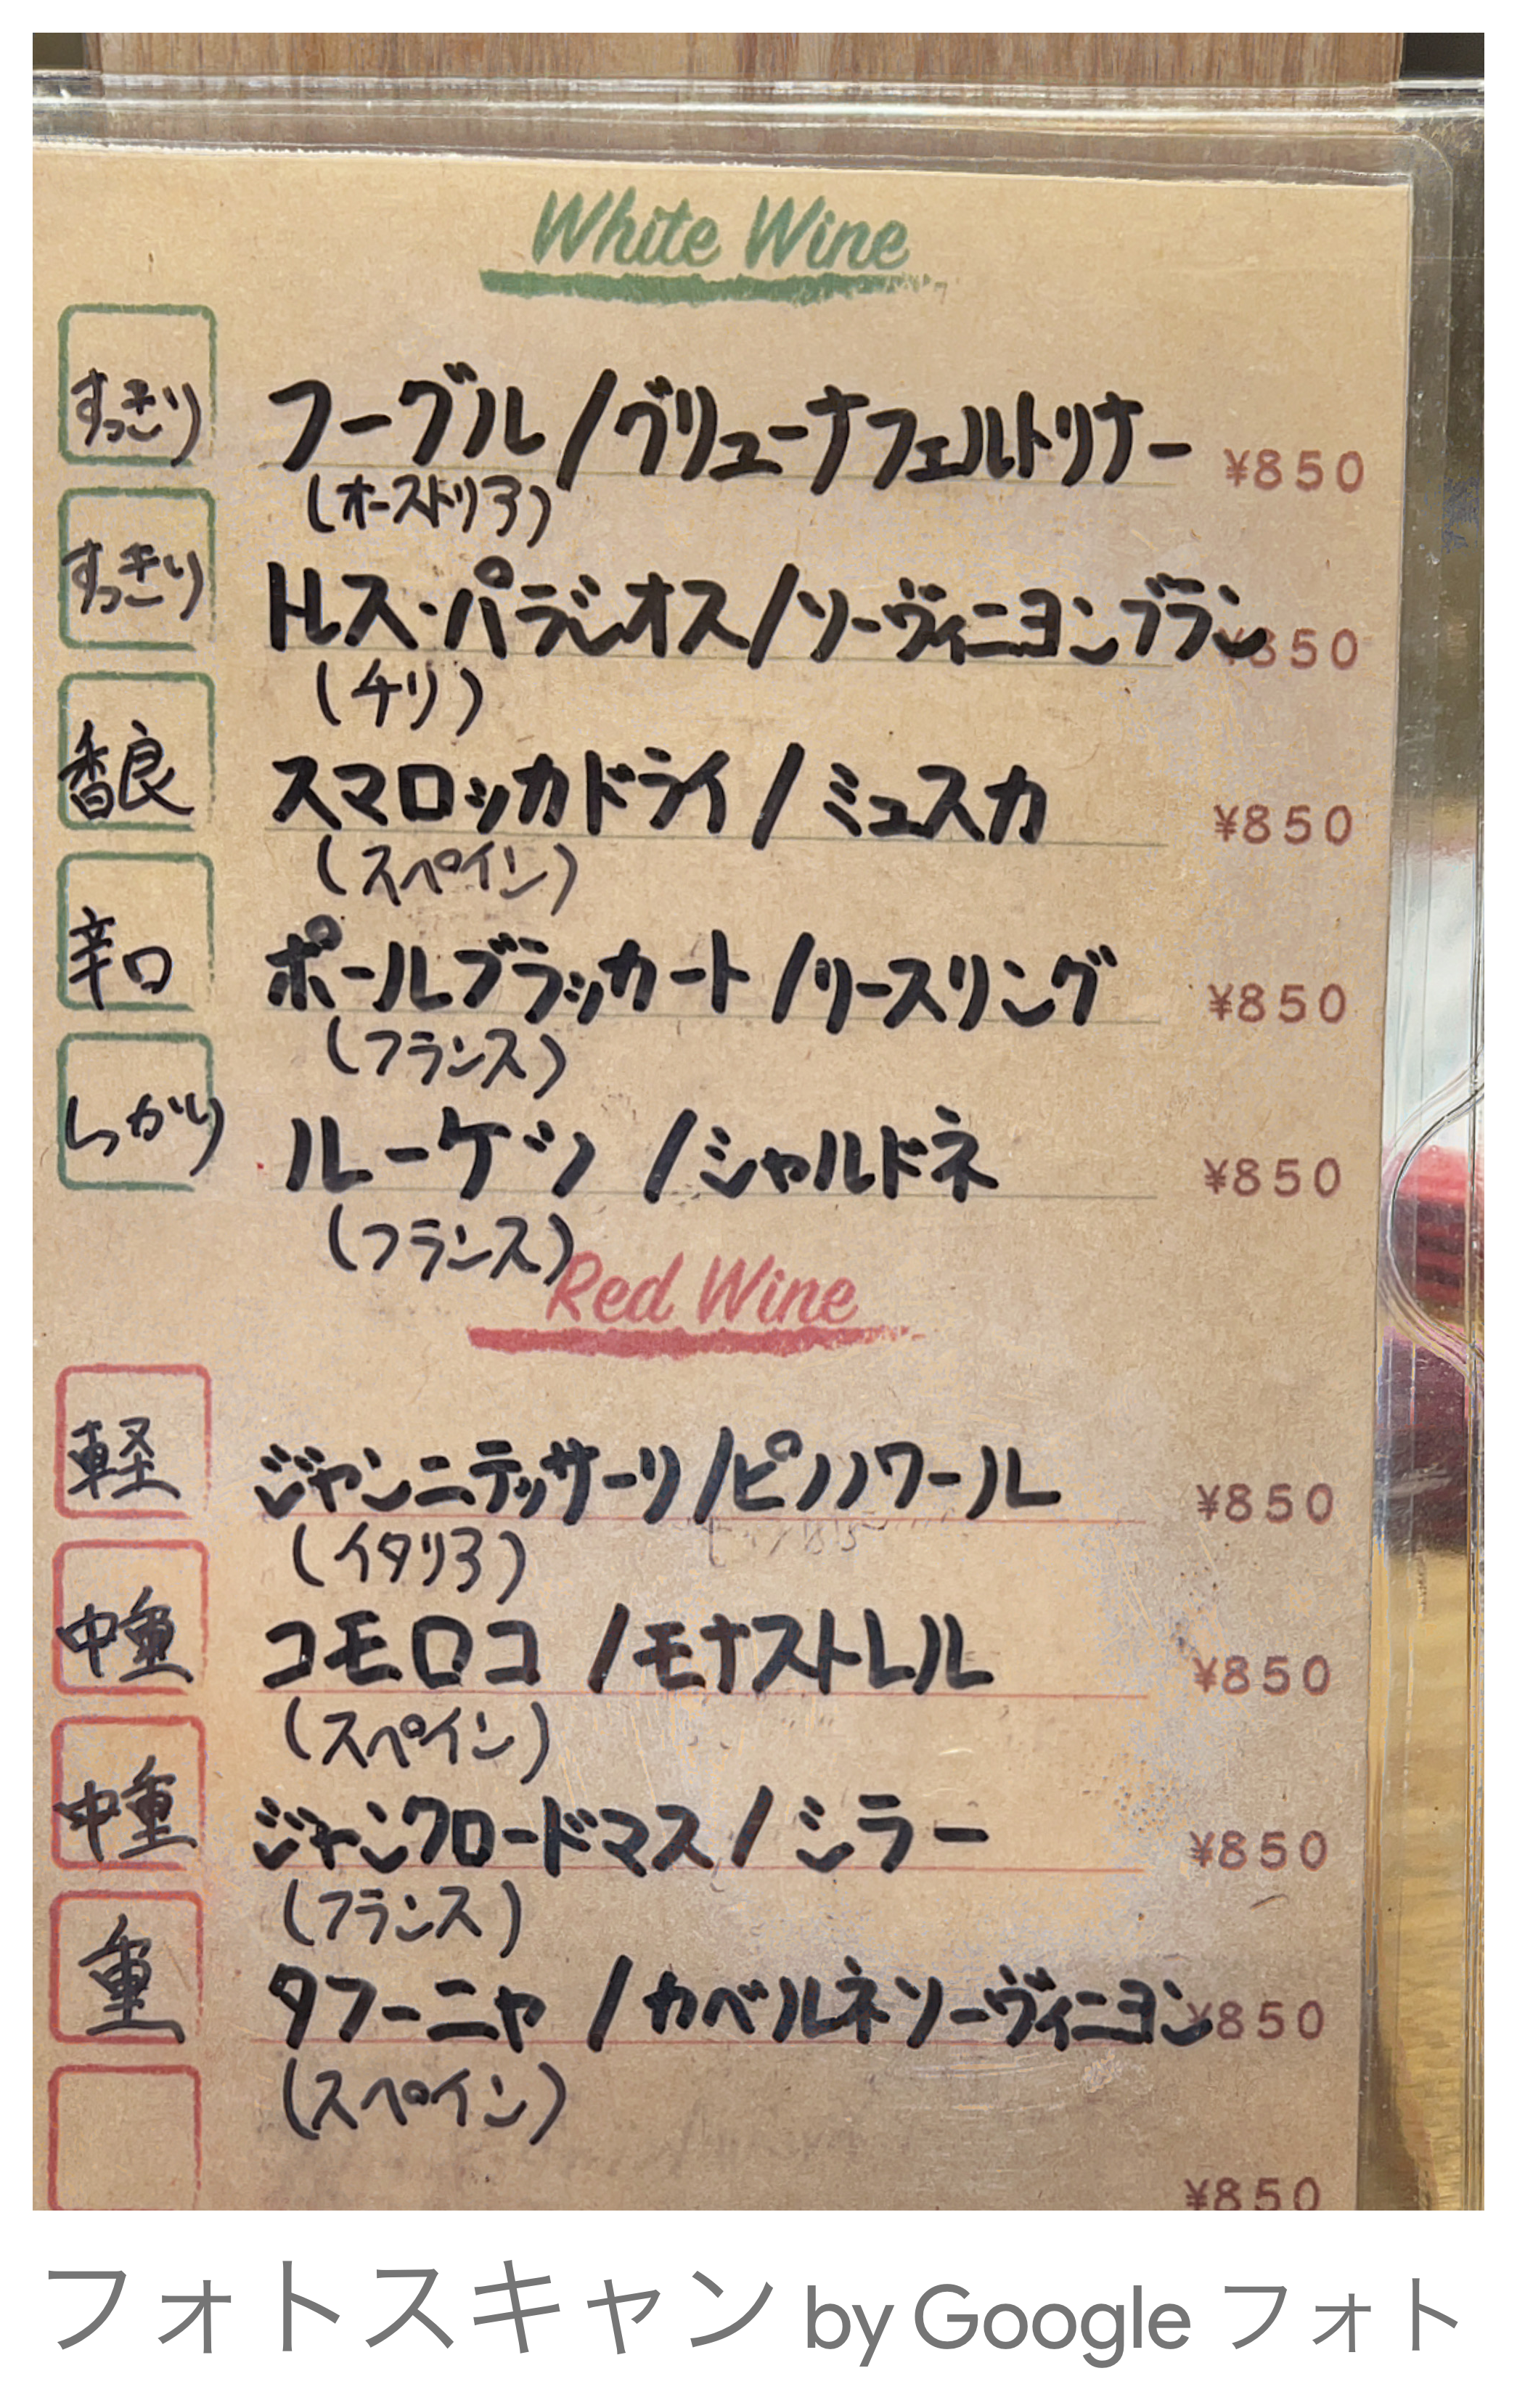 White Wine
すっきり フーグル/グリューナフェルトリナー ¥850
(オーストリア)
すっきり トレス・パラシオス/ソーヴィニヨンブラン ¥850
(チリ)
香良 スマロッカドライ/ミュスカ ¥850
(スペイン)
辛口 ポールブラッカート/リースリング ¥850
(フランス)
しっかり ルーケッツ/シャルドネ ¥850
(フランス)
Red Wine
軽 ジャンニテッサーリ/ピノノワール ¥850
(イタリア)
中重 コモロコ/モナストレル ¥850
(スペイン)
中重 ジャンクロードマス/シラー ¥850
(フランス)
重 タフーニャ/カベルネソーヴィニヨン ¥850
(スペイン)
¥850
フォトスキャン by Google フォト